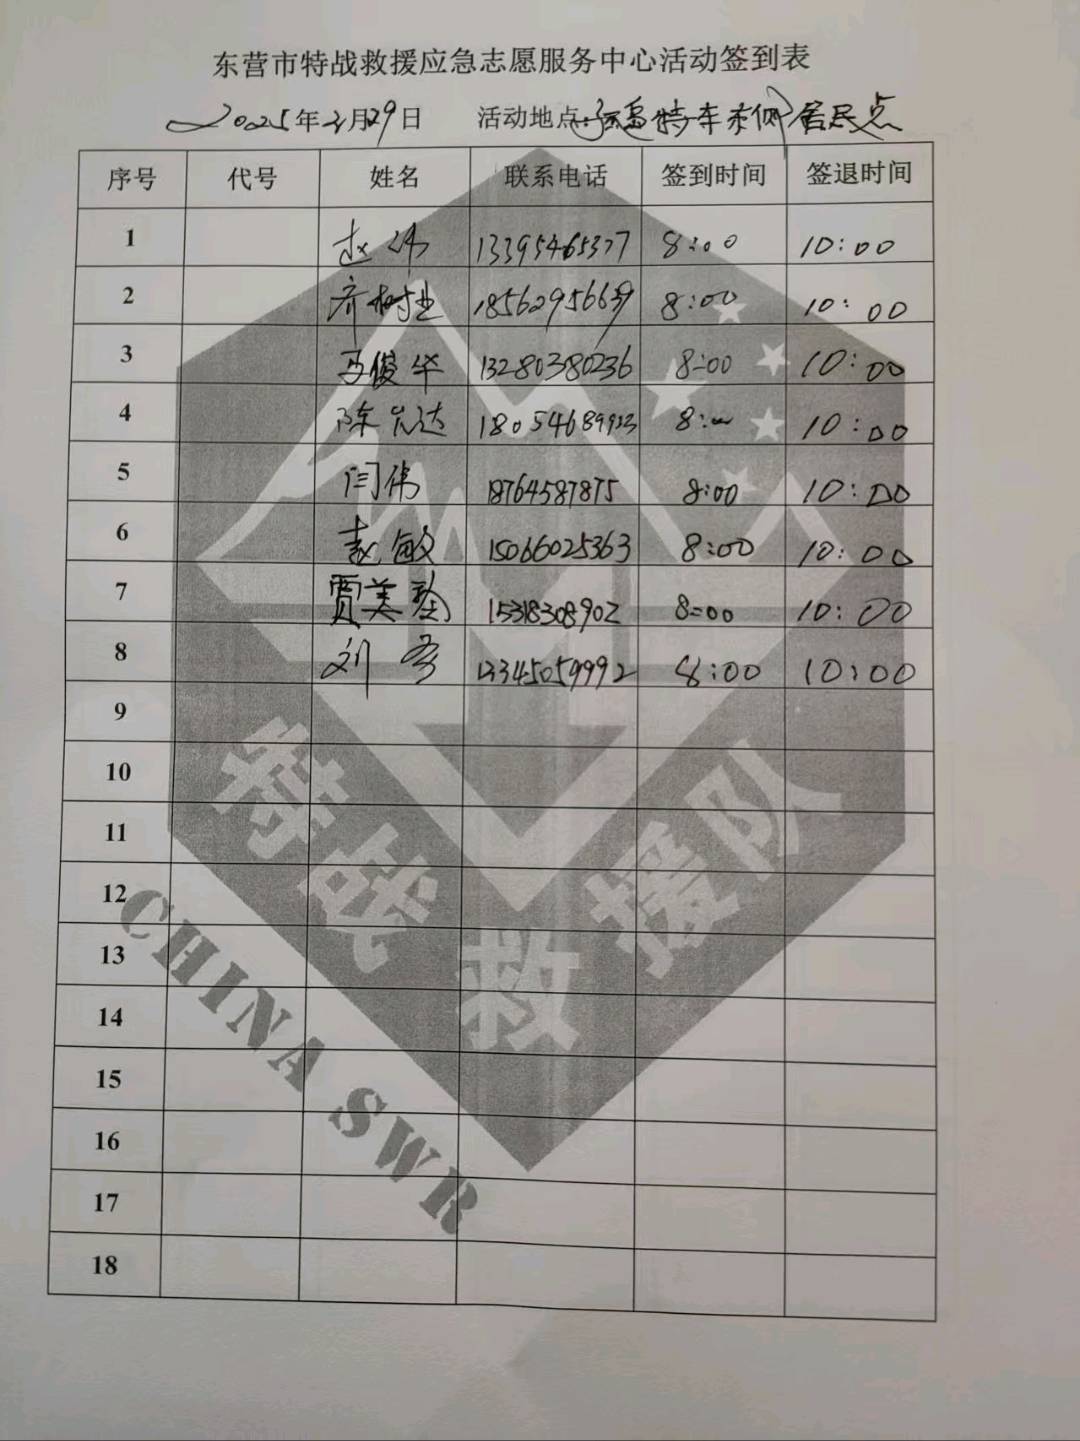 东营市特战救援应急志愿服务中心活动签到表
2025年3月29日 活动地点: 特车东侧居民点
序号 代号 姓名 联系电话 签到时间 签退时间
1 赵伟 13395465377 8:00 10:00
2 齐树业 18562956639 8:00 10:00
3 马俊华 13280380236 8:00 10:00
4 陈 达 18054689923 8:00 10:00
5 闫伟 18764587875 8:00 10:00
6 赵敏 15066025363 8:00 10:00
7 贾美 15318308902 8:00 10:00
8 刘 13345059992 8:00 10:00
9
10
11
12
13
14
15
16
17
18
特战救援队
CHINA SWR